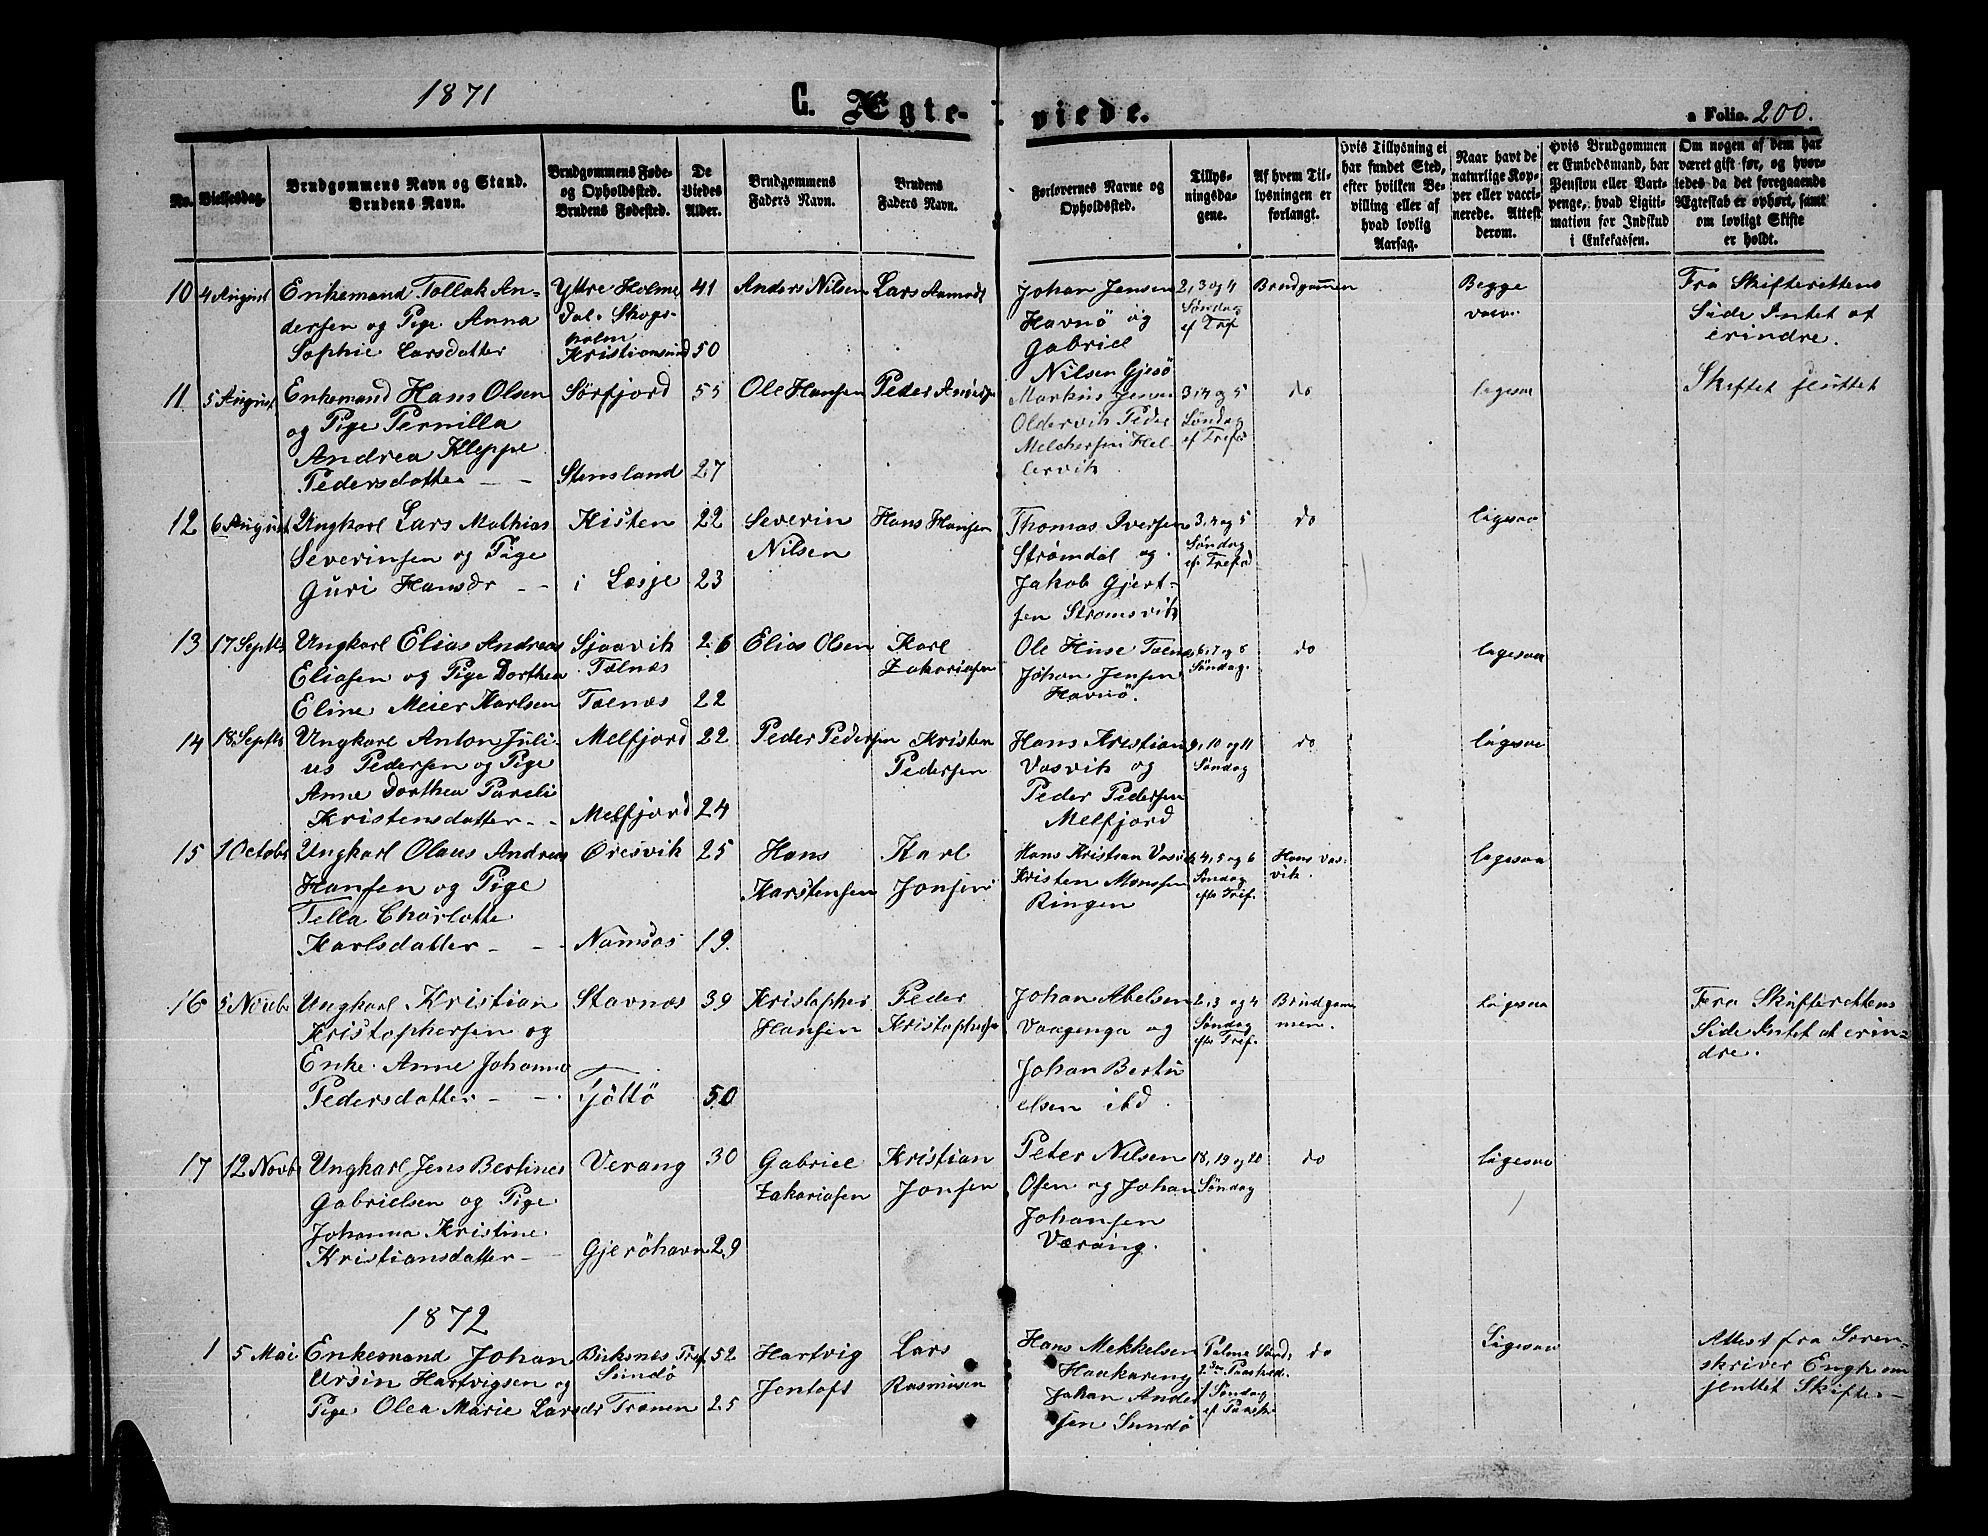 1871
C. Ægteviede.
a Folio. 200.
No.
Vielsesdag.
Brudgommens Navn og Stand.
Brudens Navn.
Brudgommens Føde-
og Opholdssted.
Brudens Fødested.
De
Viedes
Alder.
Brudgommens
Faders Navn.
Brudens
Faders Navn.
Forlovernes Navne og
Opholdssted.
Tillys-
ningsda-
gene.
Af hvem Til-
lysningen er
forlangt.
Hvis Tillysning ei
har fundet Sted,
efter hvilken Be-
villing eller af
hvad lovlig
Aarsag.
Naar havt de
naturlige Kop-
per eller vacci-
nerede. Attest
derom.
Hvis Brudgommen
er Embedsmand, har
Pension eller Vart-
penge, hvad Ligiti-
mation for Indskud
i Enkekassen.
Om nogen af dem har
været gift før, og hvor-
ledes da det foregaaende
Ægteskab er ophørt, samt
om lovligt Skifte
er holdt.
10 4 August Enkemand Tollak An- Yttre Holme 41 Anders Nilsen Lars Aamodt Johan Jensen 2, 3 og 4 Brudgommen Begge Fra Skifterettens
dersen og Pige Anna dal. Skogs- Havnö og Søndag vacc. Side Intet at
holm Gabriel ef Tref erindre.
Sophie Larsdatter Kristiansund 50 Nilsen Gjesö
11 5 August Enkemand Hans Olsen Sörfjord 55 Ole Hansen Peder Markus Jensen 3, 4 og 5 do ligesaa Skiftet sluttet
og Pige Pernilla Oldervik Peder Søndag
Andrea Kleppe Melchersen Hel- ef Tref
Pedersdatter - - Stensland 27 lervik
12 6 August Ungkarl Lars Mathias Kisten 22 Severin Hans Hansen Thomas Iversen 3, 4 og 5 do ligesaa
Severinsen og Pige Nilsen Strömdal og Søndag
Guri Hansdr - - i Lesje 23 Jakob Gjert- ef Tref
sen Strömsvik
13 17 Septbr Ungkarl Elias Andreas Sjaavik 26 Elias Olsen Karl Ole Huse Tælnæs 6, 7 og 8 do ligesaa
Eliasen og Pige Dorthea Tælnæs Zakariasen Johan Jensen Søndag.
Eline Meier Karlsen Tælnæs 22 Havnö.
14 18 Septbr Ungkarl Anton Juli- Melfjord 22 Peder Pedersen Kristen Hans Kristian 9, 10 og 11 do ligesaa
us Pedersen og Pige Pedersen Vasvik og Søndag
Anne Dorthea Parelie Peder Pedersen
Kristensdatter - - Melfjord 24 Melfjord
15 1 Octobr Ungkarl Olaus Andreas Öresvik 25 Hans Karl Hans Kristian Vasvik 4, 5 og 6 Hans Vas- ligesaa
Hansen og Pige Karstensen Jonsen Kristen Monsen Søndag vik.
Tella Charlotte Ringen efter Tref.
Karlsdatter - - Namsos 19.
16 5 Novbr Ungkarl Kristian Stavnæs 39 Kristopher Peder Johan Abelsen 2, 3 og 4 Brudgom- ligesaa Fra Skifterettens
Kristophersen og Hansen Kristophersen Vaagenga og Søndag men. Side Intet at erin-
Enke Anne Johanna Johan Bertu efter Tref. dre.
Pedersdatter - - Tjöttö 50 elsen ibd.
17 12 Novbr Ungkarl Jens Bertines Verang 30 Gabriel Kristian Peter Nilsen 18, 19 og 20 do ligesaa
Gabrielsen og Pige Zakariasen Jonsen Osen og Johan Søndag
Johanna Kristine Johansen
Kristiansdatter - Gjeröhavn 29 Værang.
1872
1 5 Mai Enkemand Johan Birksnes Tref. 52 Hartvig Lars Hans Mekkelsen Palme Sønd. do Ligesaa Attest fra Soren-
Ursin Hartvigsen og Sundö Jentoft Rasmusen Haakareng 2den Paasked. skriver Engh om
Pige Olea Marie Larsdr Trænen 25 Johan Ander Søndag jenttet Skifte. -
sen Sundö ef Paaske